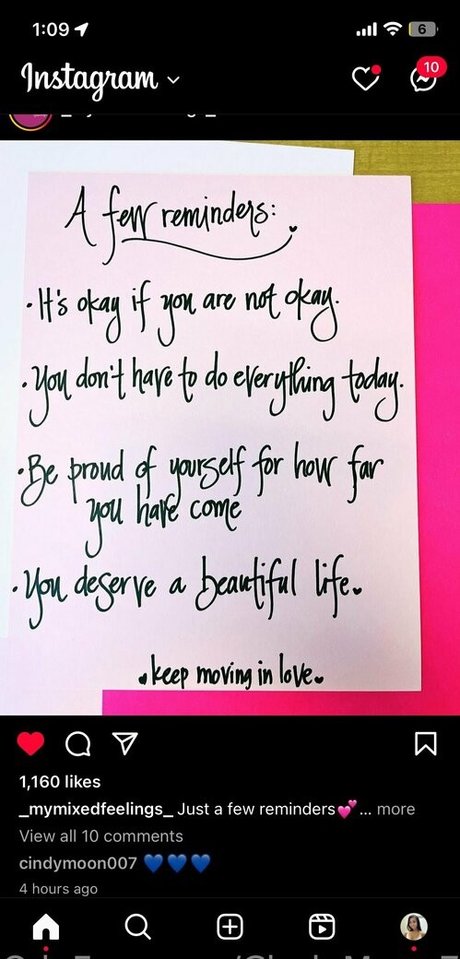 1:09
6
Instagram
10
A few reminders:
• It's okay if you are not okay.
• You don't have to do everything today.
• Be proud of yourself for how far
you have come
• You deserve a beautiful life.
keep moving in love
1,160 likes
_mymixedfeelings_ Just a few reminders💕... more
View all 10 comments
cindymoon007 💙💙💙
4 hours ago